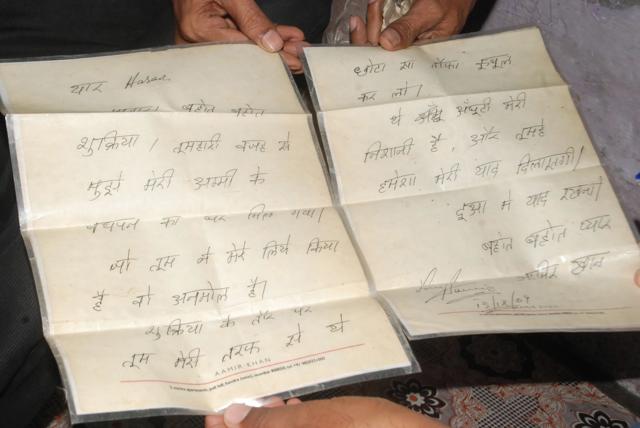 यार Hasan
बहोत बहोत
शुक्रिया। तूमहारी वजह से
मुझे मेरी अम्मी के
बचपन का घर मिल गया।
जो तूम ने मेरे लिये किया
है वो अनमोल है।
शुक्रिया के तौर पर
तूम मेरी तरफ से ये
AAMIR·KHAN
छोटा सा तोफा कूबूल
कर लो।
ये अंगूठी मेरी
निशानी है, और तूमहे
हमेशा मेरी याद दिलाएगी।
दूआ मे याद रखना।
बहोत बहोत प्यार
आमिर खान